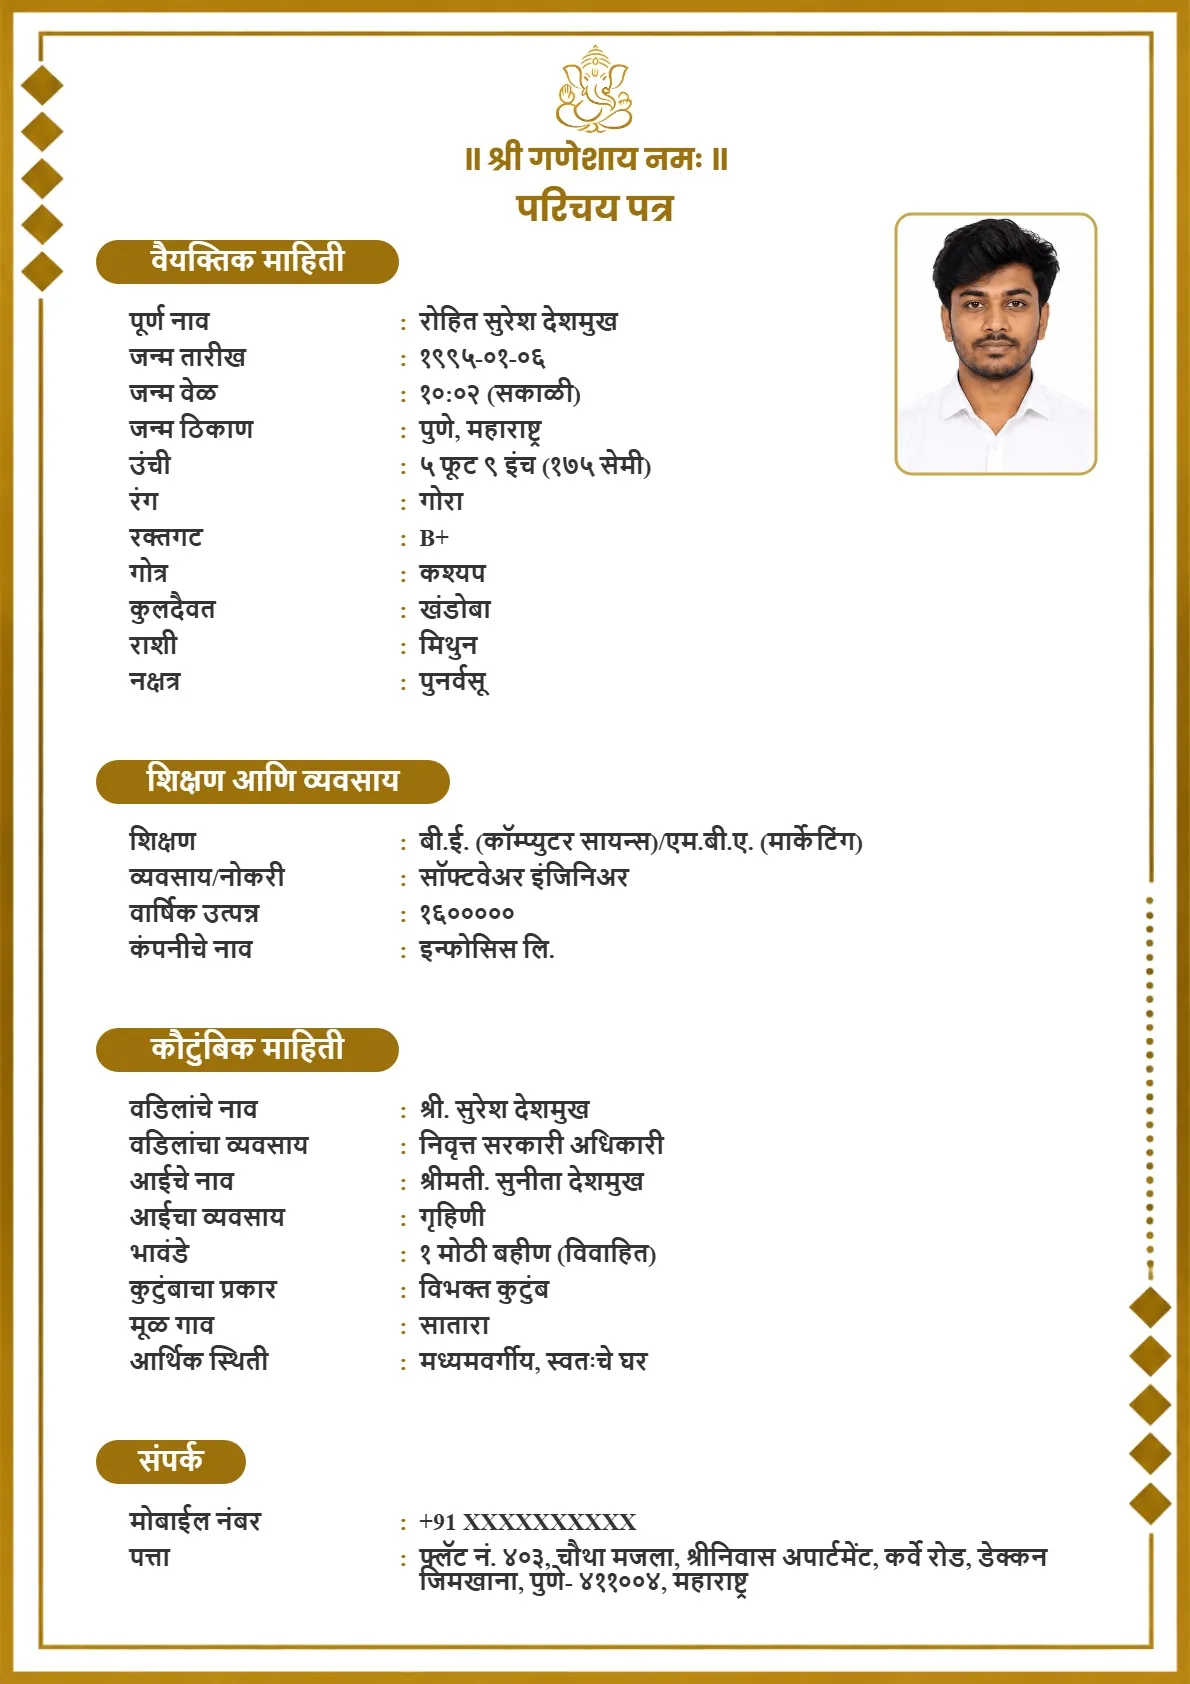 ॥ श्री गणेशाय नमः ॥
परिचय पत्र
वैयक्तिक माहिती
पूर्ण नाव : रोहित सुरेश देशमुख
जन्म तारीख : १९९५-०१-०६
जन्म वेळ : १०:०२ (सकाळी)
जन्म ठिकाण : पुणे, महाराष्ट्र
उंची : ५ फूट ९ इंच (१७५ सेमी)
रंग : गोरा
रक्तगट : B+
गोत्र : कश्यप
कुलदैवत : खंडोबा
राशी : मिथुन
नक्षत्र : पुनर्वसू
शिक्षण आणि व्यवसाय
शिक्षण : बी.ई. (कॉम्प्युटर सायन्स)/एम.बी.ए. (मार्केटिंग)
व्यवसाय/नोकरी : सॉफ्टवेअर इंजिनिअर
वार्षिक उत्पन्न : १६०००००
कंपनीचे नाव : इन्फोसिस लि.
कौटुंबिक माहिती
वडिलांचे नाव : श्री. सुरेश देशमुख
वडिलांचा व्यवसाय : निवृत्त सरकारी अधिकारी
आईचे नाव : श्रीमती. सुनीता देशमुख
आईचा व्यवसाय : गृहिणी
भावंडे : १ मोठी बहीण (विवाहित)
कुटुंबाचा प्रकार : विभक्त कुटुंब
मूळ गाव : सातारा
आर्थिक स्थिती : मध्यमवर्गीय, स्वतःचे घर
संपर्क
मोबाईल नंबर : +91 XXXXXXXXXX
पत्ता : फ्लॅट नं. ४०३, चौथा मजला, श्रीनिवास अपार्टमेंट, कर्वे रोड, डेक्कन
जिमखाना, पुणे- ४११००४, महाराष्ट्र